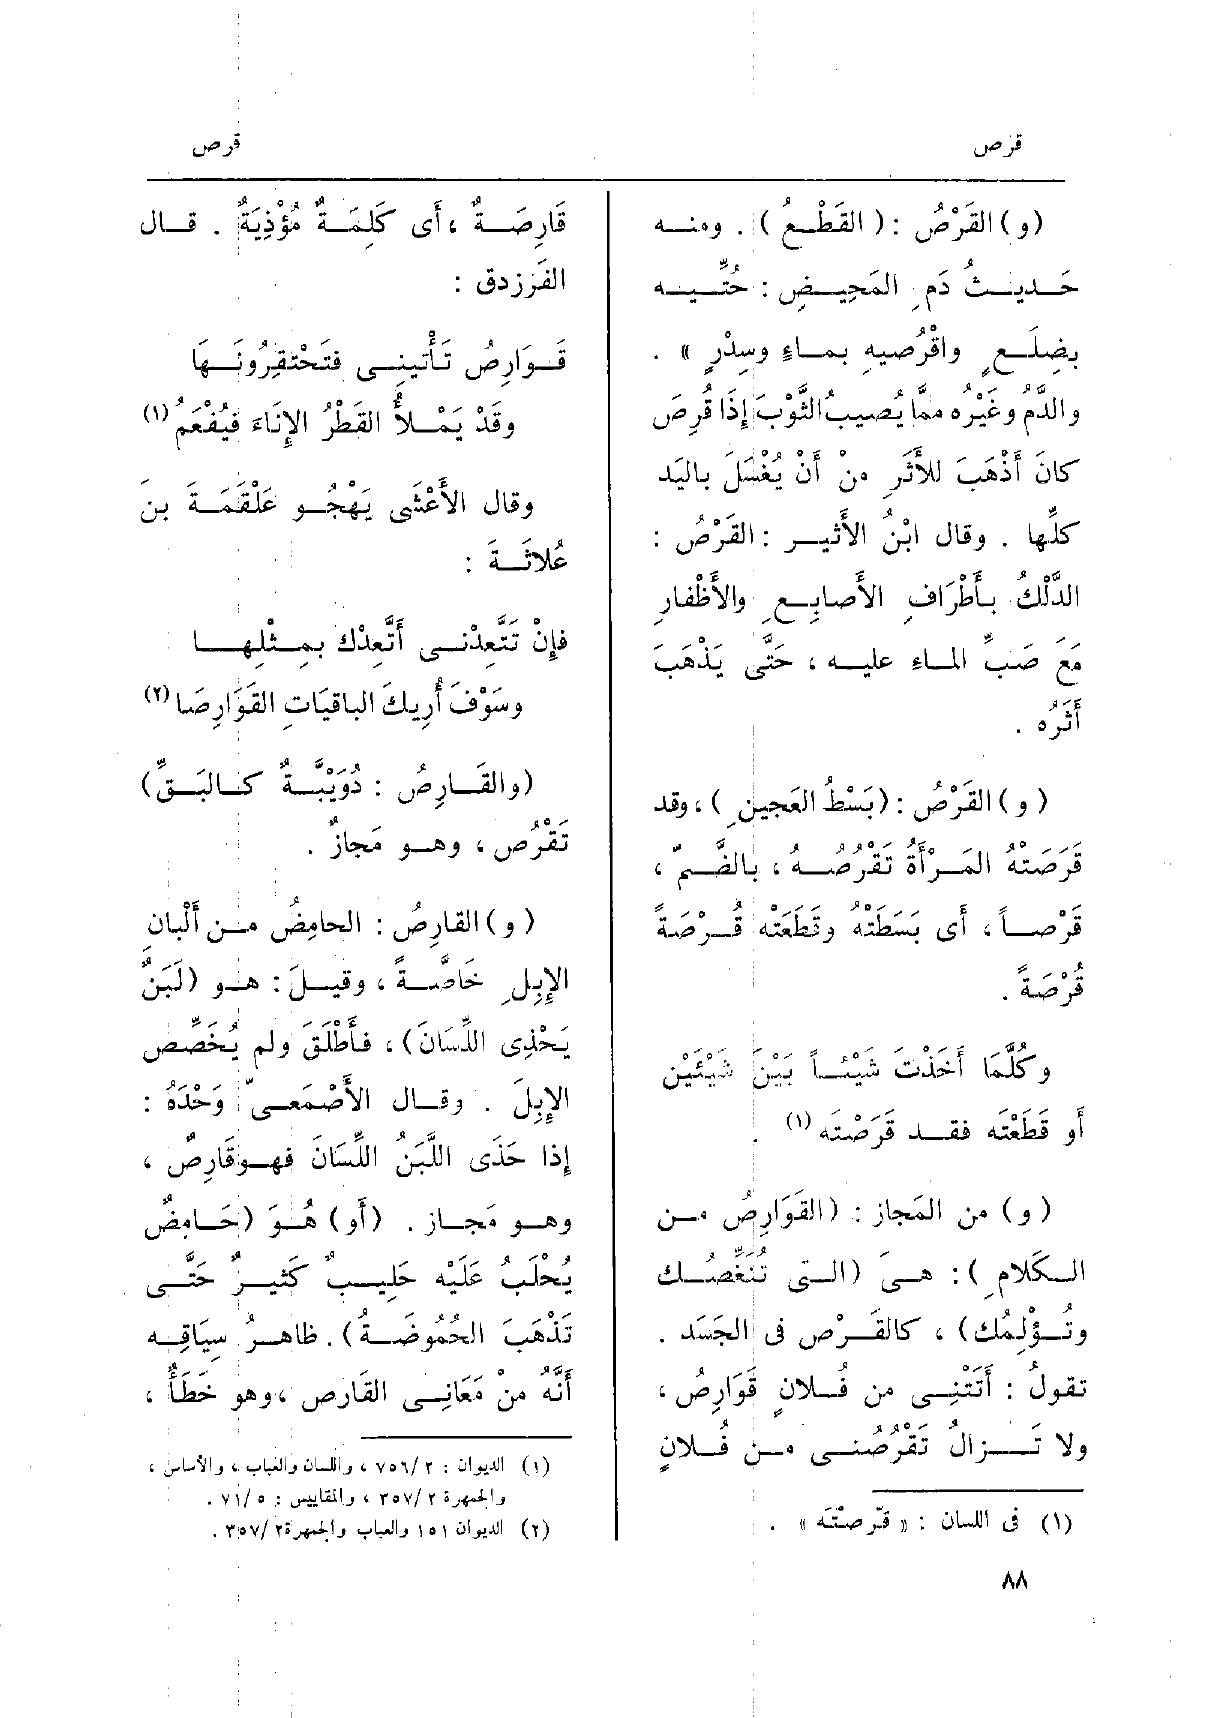 قرص
قرص
(و) القَرْصُ : (القَطْعُ) . ومنـه
حَـديـثُ دَمِ المَحِيـضِ : حُتِّيـه
بضِلَـعٍ واقْرُصيهِ بمـاءٍ وسِدْرٍ » .
والدَّمُ وغَيْرُه ممّا يُصيبُ الثَّوْبَ إذَا قُرِصَ
كانَ أَذْهَبَ للأَثَرِ منْ أَنْ يُغْسَلَ باليَد
كلِّها . وقال ابْنُ الأَثيـر : القَرْصُ :
الدَّلْكُ بـأَطْرَافِ الأَصابِـعِ والأَظْفارِ
مَعَ صَبِّ المـاء عليـه ، حَتَّى يَذْهَبَ
أَثَرُه .
(و) القَرْصُ : (بَسْطُ العَجينِ) ، وقد
قَرَصَتْهُ المَـرْأَةُ تَقْرُصُـهُ ، بالضَّـمّ ،
قَرْصـاً ، أَى بَسَطَتْهُ وقَطَعَتْه قُـرْصَةً
قُرْصَةً .
وكُلَّمَا أَخَذْتَ شَيْئـاً بَيْنَ شَيْئَيْن
أو قَطَعْتَه فقـد قَرَصْتَه (١) .
(و) من المَجاز : (القَوَارِصُ مـن
الـكَلَامِ) : هـىَ (الـتى تُنَغِّصُـك
وتُـؤْلِمُك) ، كالقَـرْص فى الجَسَد .
تقولُ : أَتَتْنِـى من فُـلانٍ قَوَارِصُ ،
ولا تَـزالُ تَقْرُصُنـى مـن فُـلانٍ
(١) فى اللسان : « قَرَصْتَه » .
قَارِصَـةٌ ، أى كَلِمَـةٌ مُؤْذِيَةٌ . قـال
الفَرَزدق :
قَـوَارِصُ تَـأْتينِـى فتَحْتقِرُونَـهَا
وقَدْ يَمْـلأُ القَطْرُ الإِنَاءَ فيُفْعَمُ (١)
وقال الأَعْشَى يَهْجُـو عَلْقَمَـةَ بن
عُلَاثَـةَ :
فإِنْ تَتَّعِدْنـى أَتَّعِدْك بمـثْلِهـا
وسَوْفَ أُرِيكَ الباقيَاتِ القَوَارِصَا (٢)
(والقَـارِصُ : دُوَيْبَّـةٌ كـالبَـقِّ)
تَقْرُص ، وهـو مَجازٌ .
(و) القارِصُ : الحامِضُ مـن أَلْبانِ
الإِبِلِ خَاصَّـةً ، وقيـلَ : هـو (لَبَنٌ
يَحْذِى اللِّسَانَ) ، فـأَطْلَقَ ولم يُخَصِّص
الإِبِلَ . وقـال الأَصْمَعـىّ وَحْدَهُ :
إذا حَذَى اللَّبَنُ اللِّسَانَ فهـو قَارِصٌ ،
وهـو مَجـاز . (أو) هُـوَ (حَـامِضٌ
يُحْلَبُ عَلَيْه حَليـبٌ كَثيـرٌ حَتَّـى
تَذْهَبَ الحُمُوضَـةُ) . ظاهـرُ سِيَاقِـه
أَنَّهُ منْ مَعَانِـى القَارِص ، وهو خَطَأٌ ،
(١) الديوان : ٧٥٦/٢ ، واللسان والعباب ، والأساس ،
والجمهرة ٣٥٧/٢ ، والمقاييس : ٧١/٥ .
(٢) الديوان ١٥١ والعباب والجمهرة ٣٥٧/٢ .
٨٨